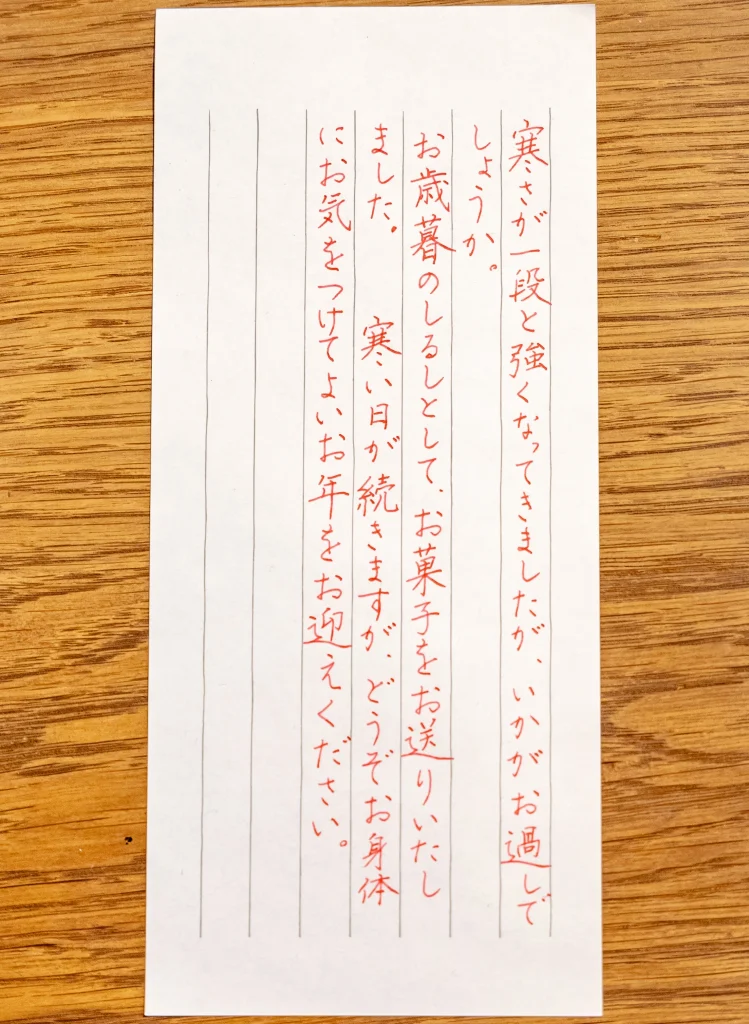 寒さが一段と強くなってきましたが、いかがお過しで
しょうか。
お歳暮のしるしとして、お菓子をお送りいたし
ました。　寒い日が続きますが、どうぞお身体
にお気をつけてよいお年をお迎えください。